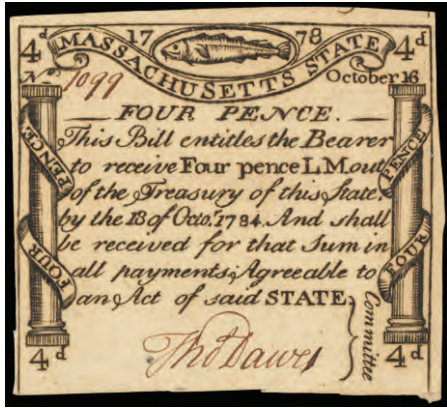 4d 17 78 4d
MASSACHUSETTS STATE
No 1099 October 16
FOUR PENCE.
This Bill entitles the Bearer
to receive Four pence L.M. out
of the Treasury of this State,
by the 18 of Octo.r 1784. And shall
be received for that Sum in
all payments, Agreeable to
an Act of said STATE.
Tho Dawes
Committee
FOUR PENCE.
FOUR PENCE
4d 4d